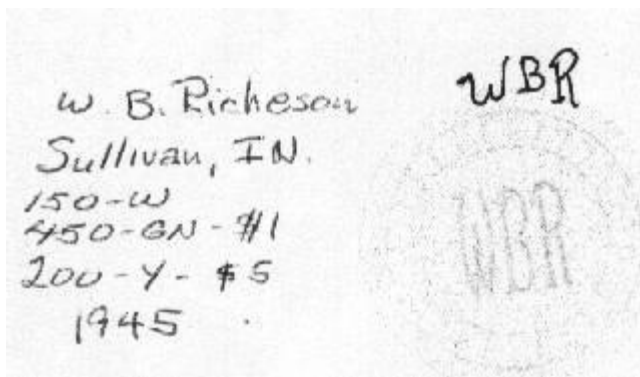 W. B. Richeson
Sullivan, IN.
150-W
450-GN-#1
200-Y-$5
1945
WBR
WBR